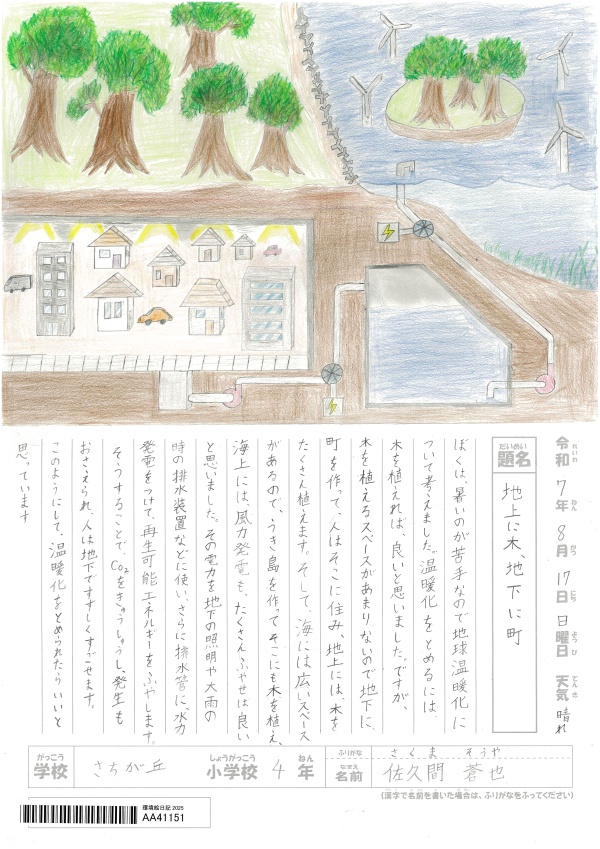 令和7年8月17日日曜日 天気 晴れ
れいわ ねん がつ にち にち よう び てん き
だいめい
題名
地上に木、地下に町
ぼくは、暑いのが苦手なので地球温暖化に
ついて考えました。温暖化をとめるには、
木を植えれば、良いと思いました。ですが、
木を植えるスペースがあまりないので地下に、
町を作って、人はそこに住み、地上には、木を
たくさん植えます。そして、海には広いスペース
があるので、うき島を作ってそこにも木を植え、
海上には、風力発電も、たくさんふやせば良い
と思いました。その電力を地下の照明や大雨の
時の排水装置などに使い、さらに排水管に、水力
発電をつけて、再生可能エネルギーをふやします。
そうすることで、CO2をきゅうしゅうし、発生も
おさえられ、人は地下ですずしくすごせます。
このようにして、温暖化をとめられたらいいと
思っています
がっこう しょうがっこう ねん
学校 さちが丘 小学校 4年
ふりがな さくま そうや
なまえ
名前 佐久間 蒼也
(漢字で名前を書いた場合は、ふりがなをふってください)
環境絵日記 2025
AA41151